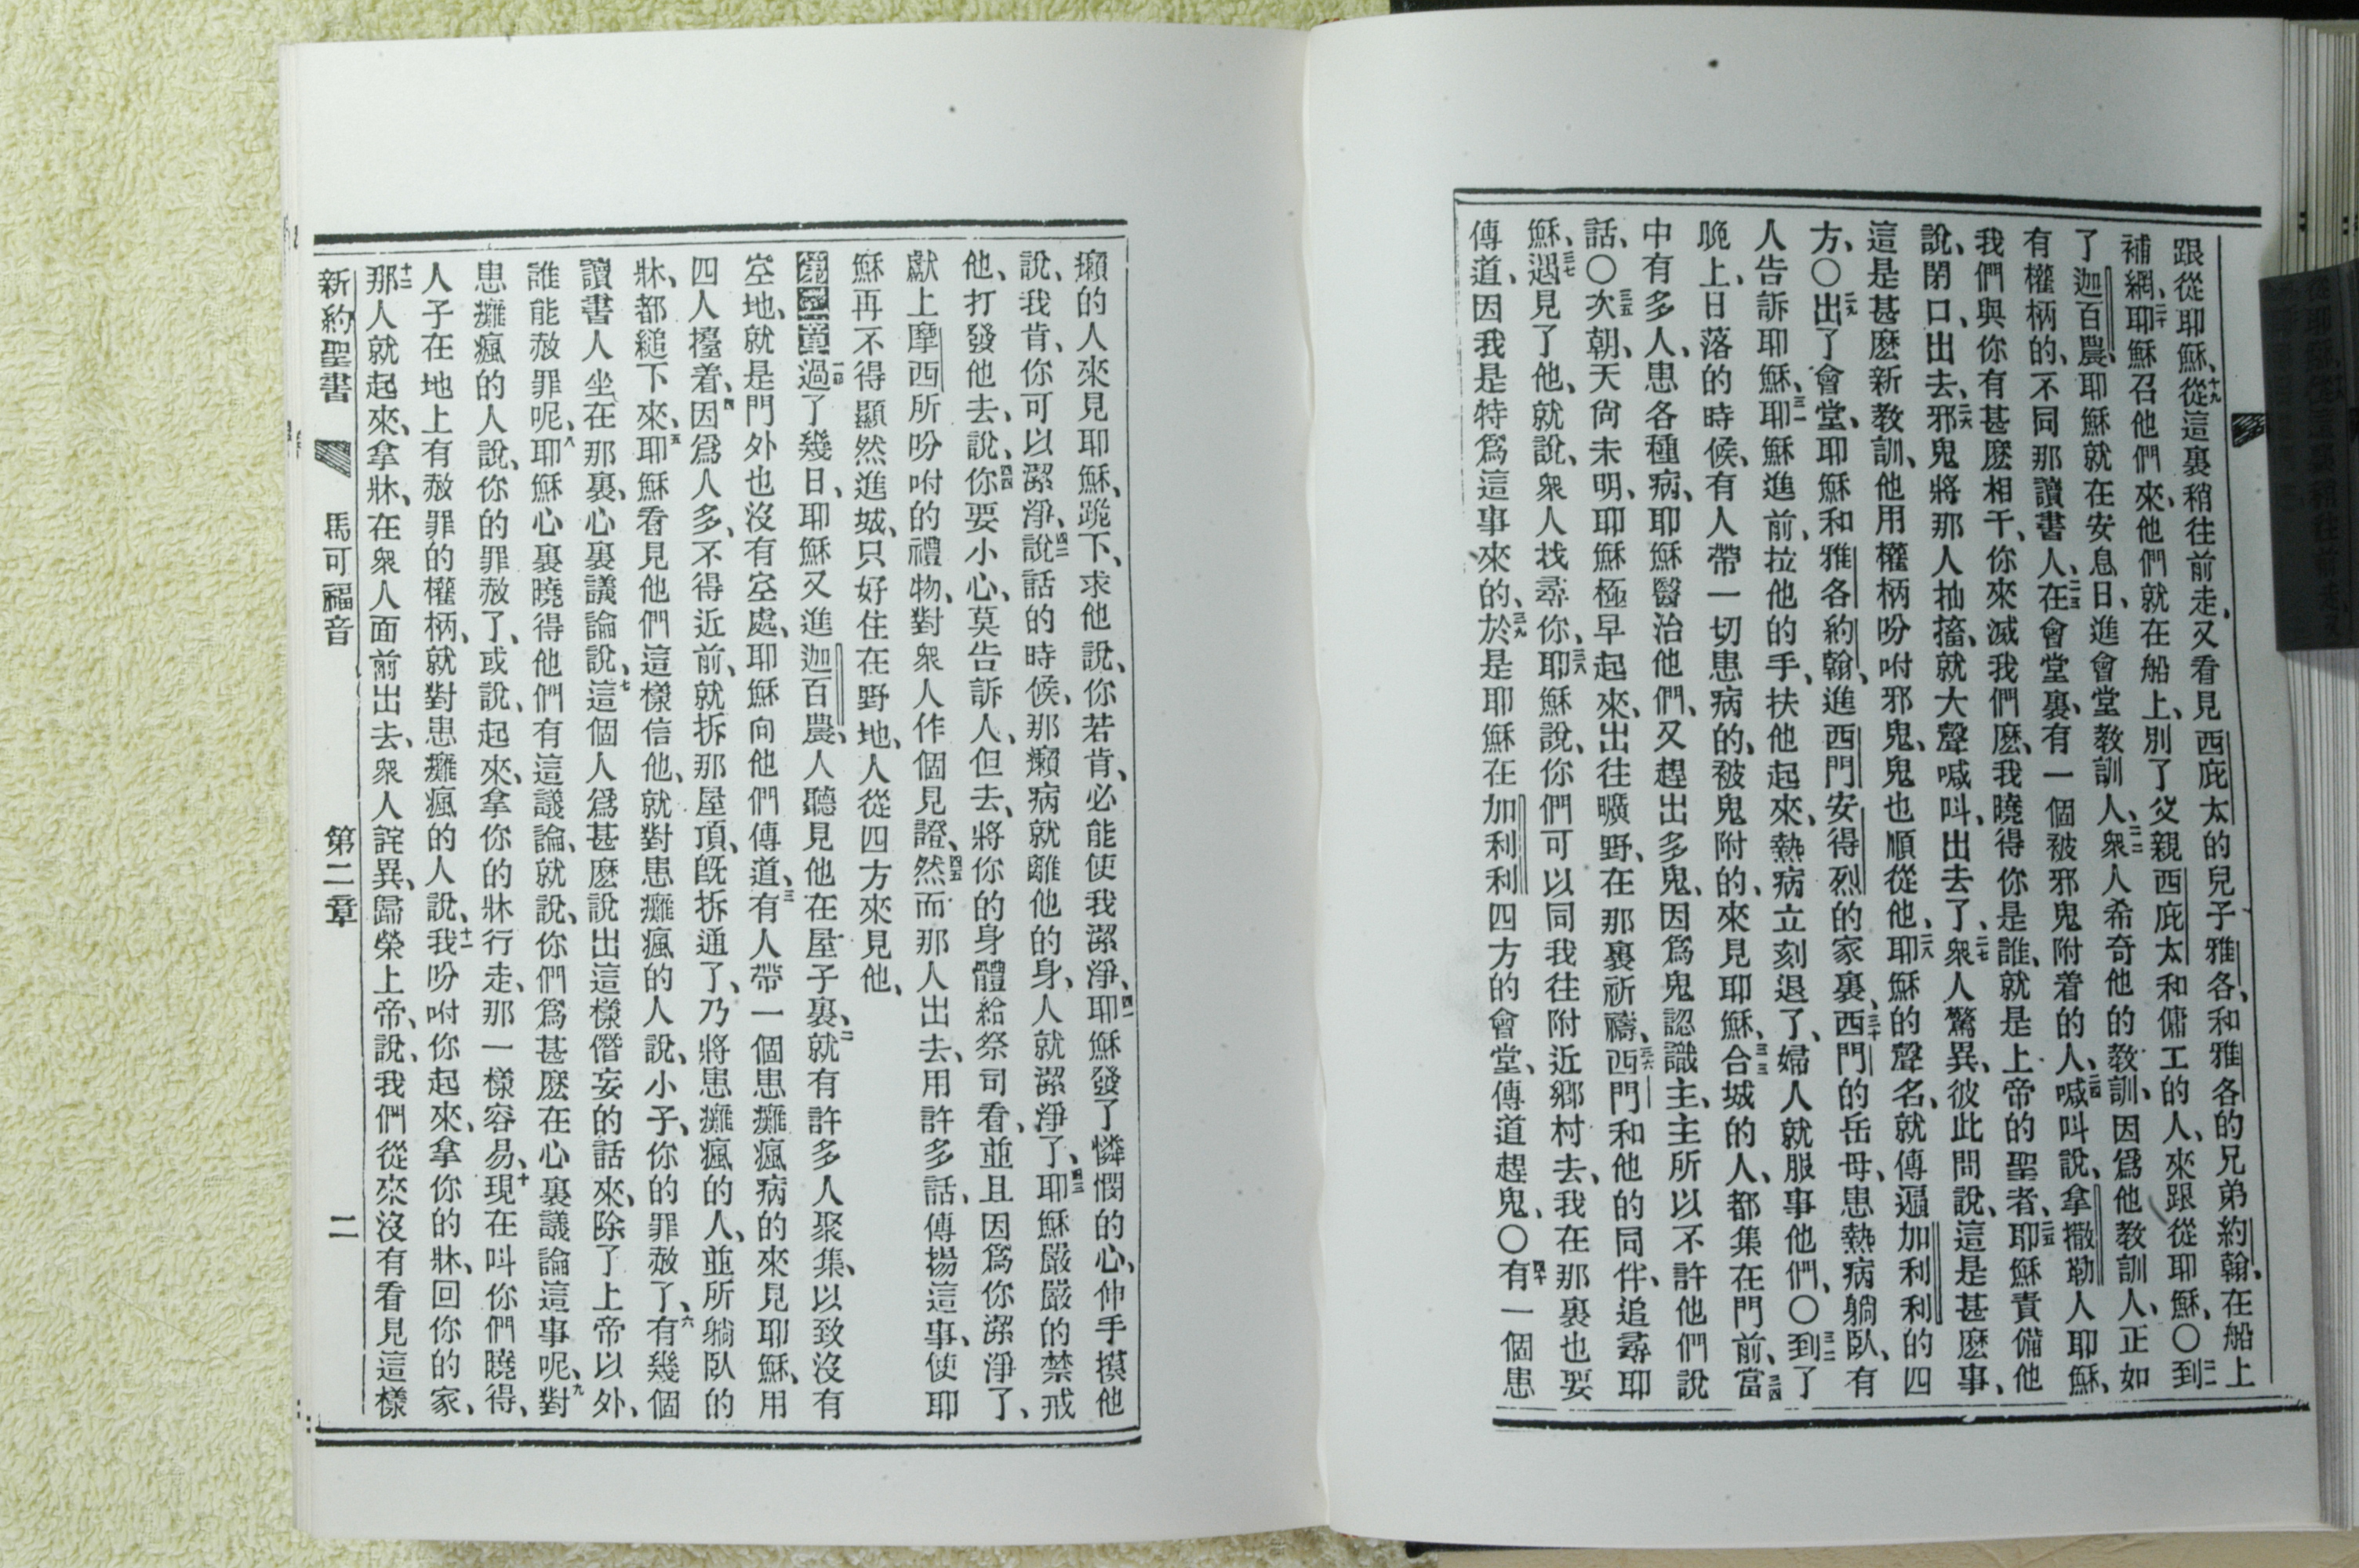 跟從耶穌、十九從這裏稍往前走、又看見西庇太的兒子雅各、和雅各的兄弟約翰、在船上
補網、二十耶穌召他們來、他們就在船上、別了父親西庇太和傭工的人、來跟從耶穌、〇二一到
了迦百農、耶穌就在安息日、進會堂教訓人、二二衆人希奇他的教訓、因爲他教訓人、正如
有權柄的、不同那讀書人、二三在會堂裏、有一個被邪鬼附着的人、二四喊叫說、拿撒勒人耶穌、
我們與你有甚麽相干、你來滅我們麽、我曉得你是誰、就是上帝的聖者、二五耶穌責備他
說、閉口、出去、二六邪鬼將那人抽搐、就大聲喊叫、出去了、二七衆人驚異、彼此問說、這是甚麽事、
這是甚麽新教訓、他用權柄吩咐邪鬼、鬼也順從他、二八耶穌的聲名、就傳遍加利利的四
方、〇二九出了會堂、耶穌和雅各約翰、進西門安得烈的家裏、三十西門的岳母、患熱病躺臥、有
人告訴耶穌、三一耶穌進前、拉他的手、扶他起來、熱病立刻退了、婦人就服事他們、〇三二到了
晚上、日落的時候、有人帶一切患病的、被鬼附的、來見耶穌、三三合城的人、都集在門前、三四當
中有多人、患各種病、耶穌醫治他們、又趕出多鬼、因爲鬼認識主、主所以不許他們說
話、〇三五次朝、天尙未明、耶穌極早起來、出往曠野、在那裏祈禱、三六西門和他的同伴、追尋耶
穌、三七遇見了他、就說、衆人找尋你、三八耶穌說、你們可以同我往附近鄉村去、我在那裏也要
傳道、因我是特爲這事來的、三九於是耶穌在加利利四方的會堂、傳道趕鬼、〇四十有一個患
癩的人來見耶穌、跪下、求他說、你若肯、必能使我潔淨、四一耶穌發了憐憫的心、伸手摸他
說、我肯、你可以潔淨、四二說話的時候、那癩病就離他的身、人就潔淨了、四三耶穌嚴嚴的禁戒
他、打發他去、說、四四你要小心、莫告訴人、但去、將你的身體給祭司看、並且因爲你潔淨了、
獻上摩西所吩咐的禮物、對衆人作個見證、四五然而那人出去、用許多話、傳揚這事、使耶
穌再不得顯然進城、只好住在野地、人從四方來見他、
第二章一節過了幾日、耶穌又進迦百農、人聽見他在屋子裏、二就有許多人聚集、以致沒有
空地、就是門外也沒有空處、耶穌向他們傳道、三有人帶一個患癱瘋病的來見耶穌、用
四人擡着、四因爲人多、不得近前、就拆那屋頂、旣拆通了、乃將患癱瘋的人、並所躺臥的
牀、都縋下來、五耶穌看見他們這樣信他、就對患癱瘋的人說、小子、你的罪赦了、六有幾個
讀書人坐在那裏、心裏議論說、七這個人爲甚麽說出這樣僭妄的話來、除了上帝以外、
誰能赦罪呢、八耶穌心裏曉得他們有這議論、就說、你們爲甚麽在心裏議論這事呢、九對
患癱瘋的人說、你的罪赦了、或說、起來、拿你的牀行走、那一樣容易、十現在叫你們曉得、
人子在地上有赦罪的權柄、就對患癱瘋的人說、十一我吩咐你起來、拿你的牀、回你的家、
十二那人就起來、拿牀、在衆人面前出去、衆人詫異、歸榮上帝、說、我們從來沒有看見這樣
新約聖書 馬可福音 第二章 二